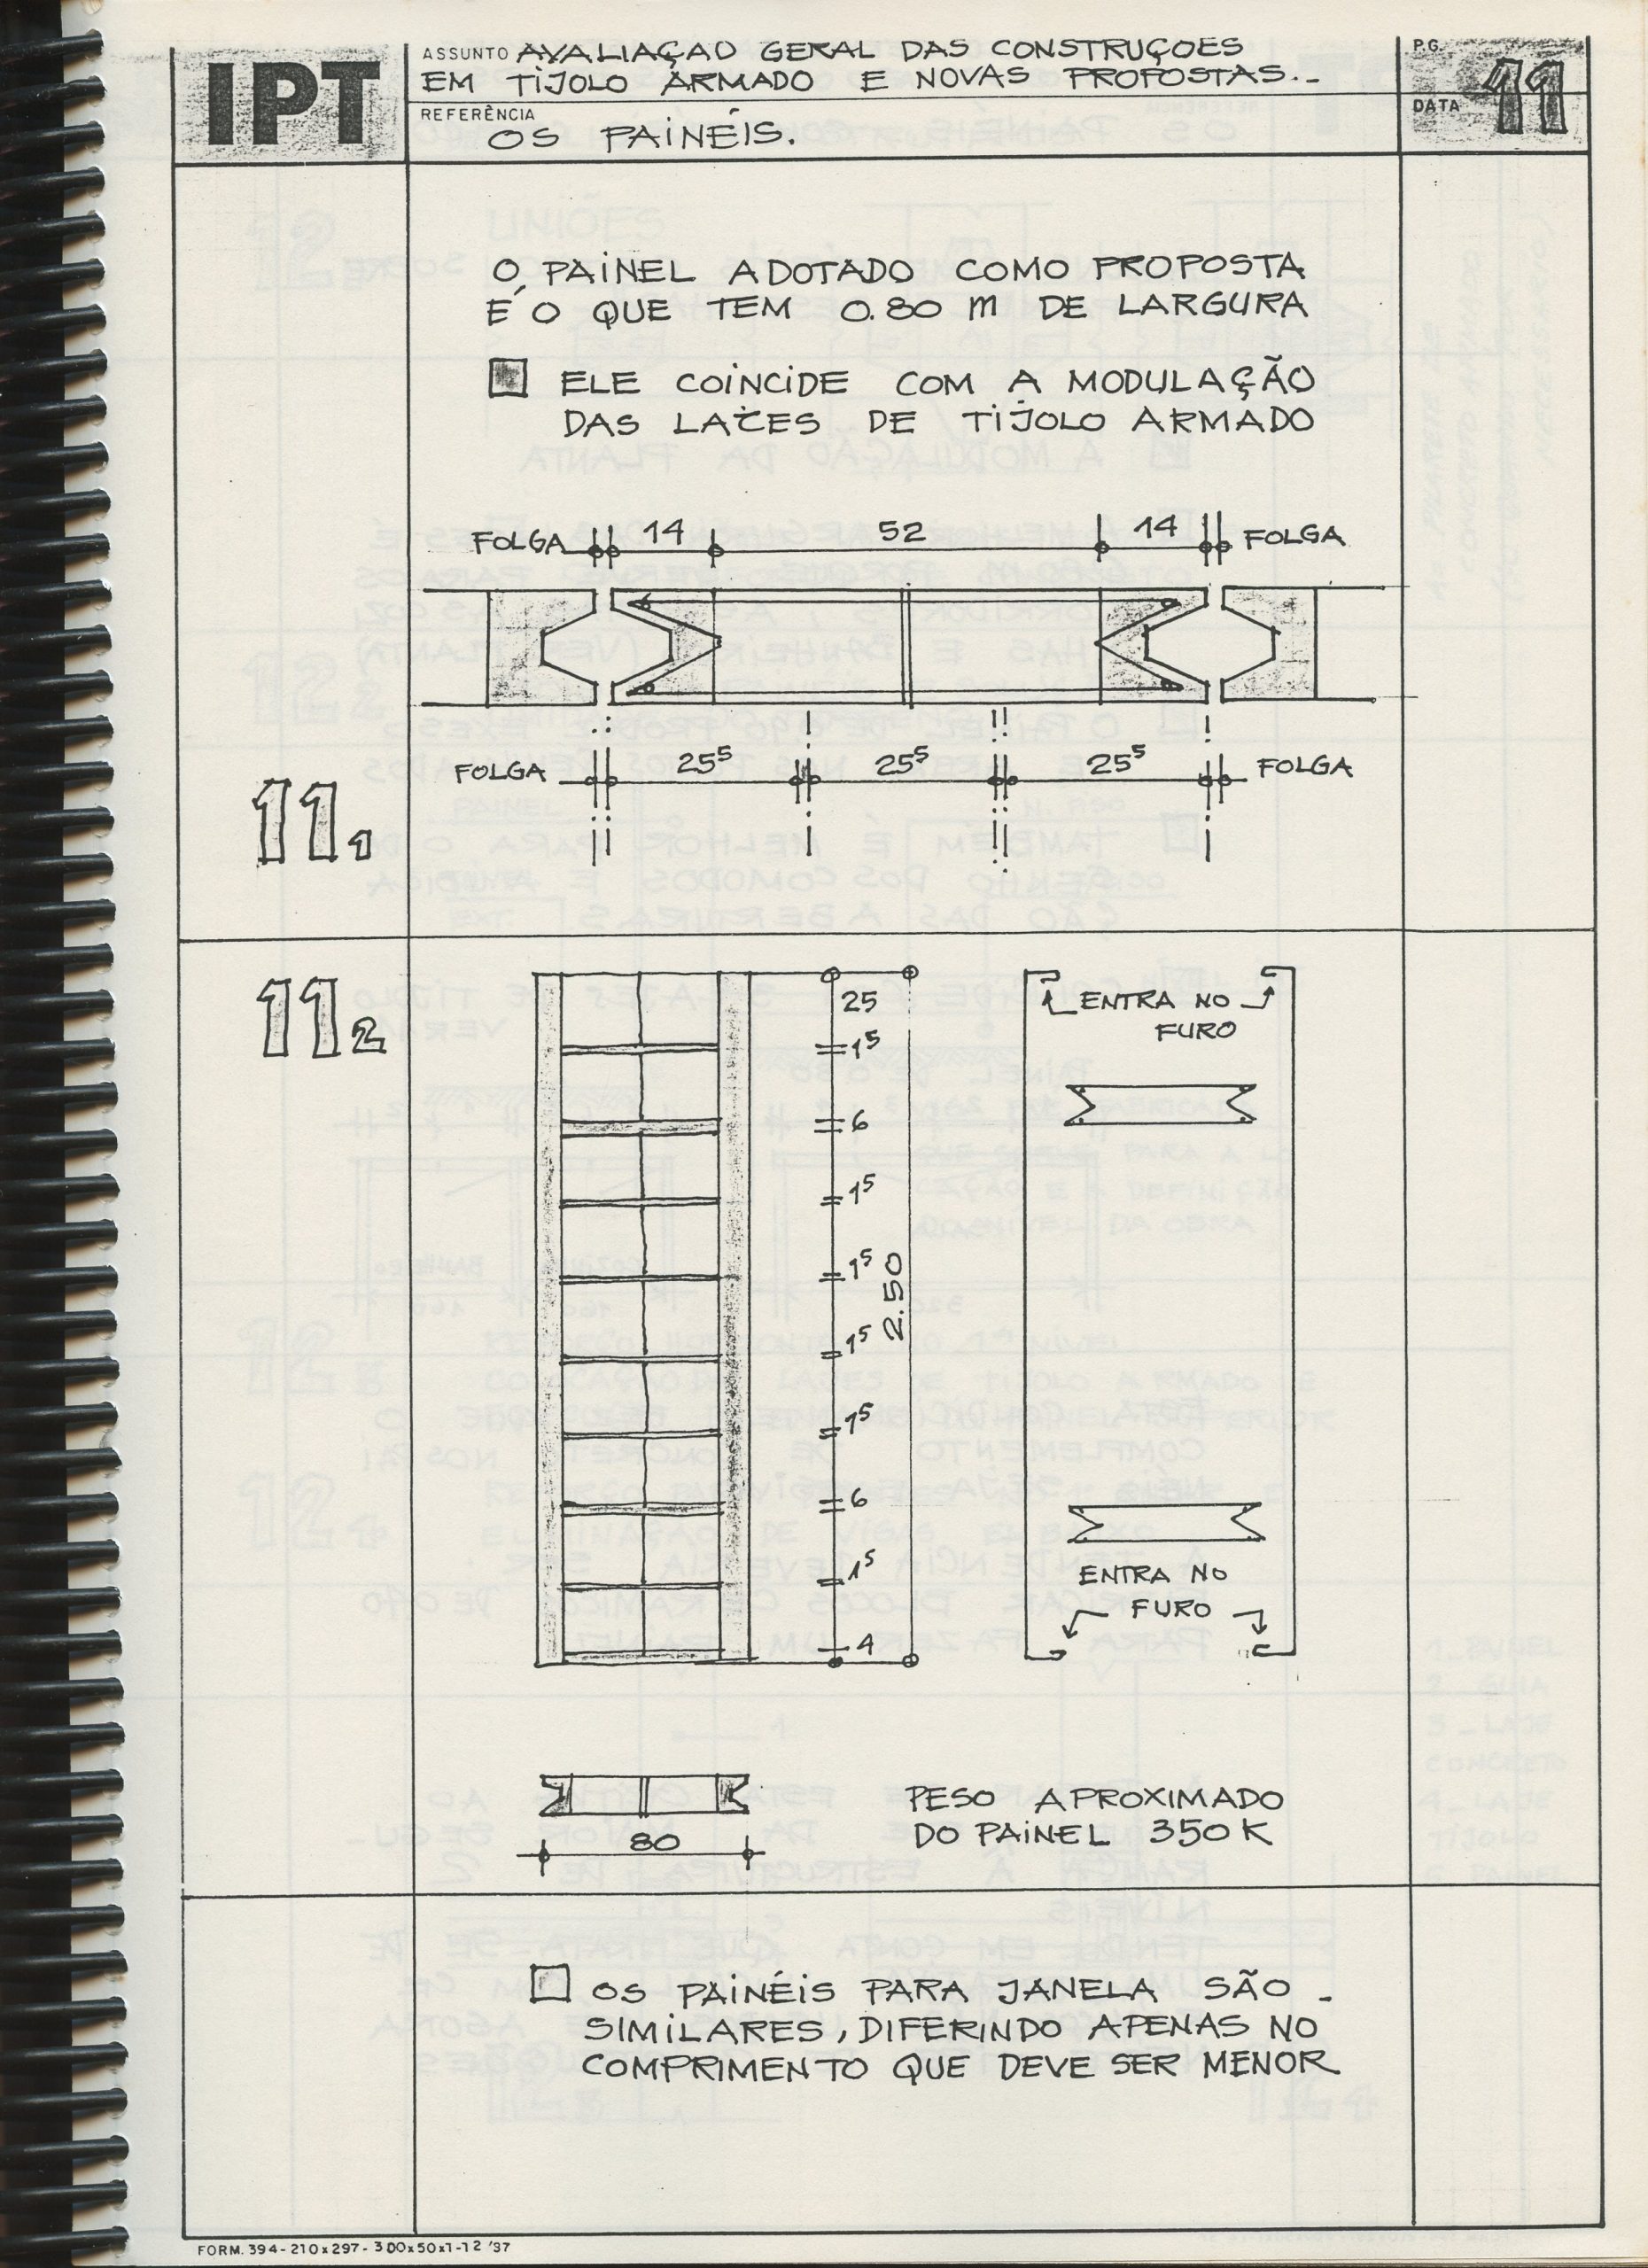 IPT
ASSUNTO AVALIAÇAO GERAL DAS CONSTRUÇOES
EM TIJOLO ARMADO E NOVAS PROPOSTAS.-
REFERÊNCIA
OS PAINÉIS.
PG.
DATA
11
O PAINEL ADOTADO COMO PROPOSTA
É O QUE TEM 0.80 m DE LARGURA
ELE COINCIDE COM A MODULAÇÃO
DAS LAJES DE TIJOLO ARMADO
FOLGA 14 52 14 FOLGA
FOLGA 25⁵ 25⁵ 25⁵ FOLGA
11₁
11₂
25
1⁵
6
1⁵
1⁵
1⁵
1⁵
6
1⁵
4
2.50
ENTRA NO
FURO
ENTRA NO
FURO
80
PESO APROXIMADO
DO PAINEL 350K
OS PAINÉIS PARA JANELA SÃO -
SIMILARES, DIFERINDO APENAS NO
COMPRIMENTO QUE DEVE SER MENOR
FORM. 394-210x297-300x50x1-12 '37